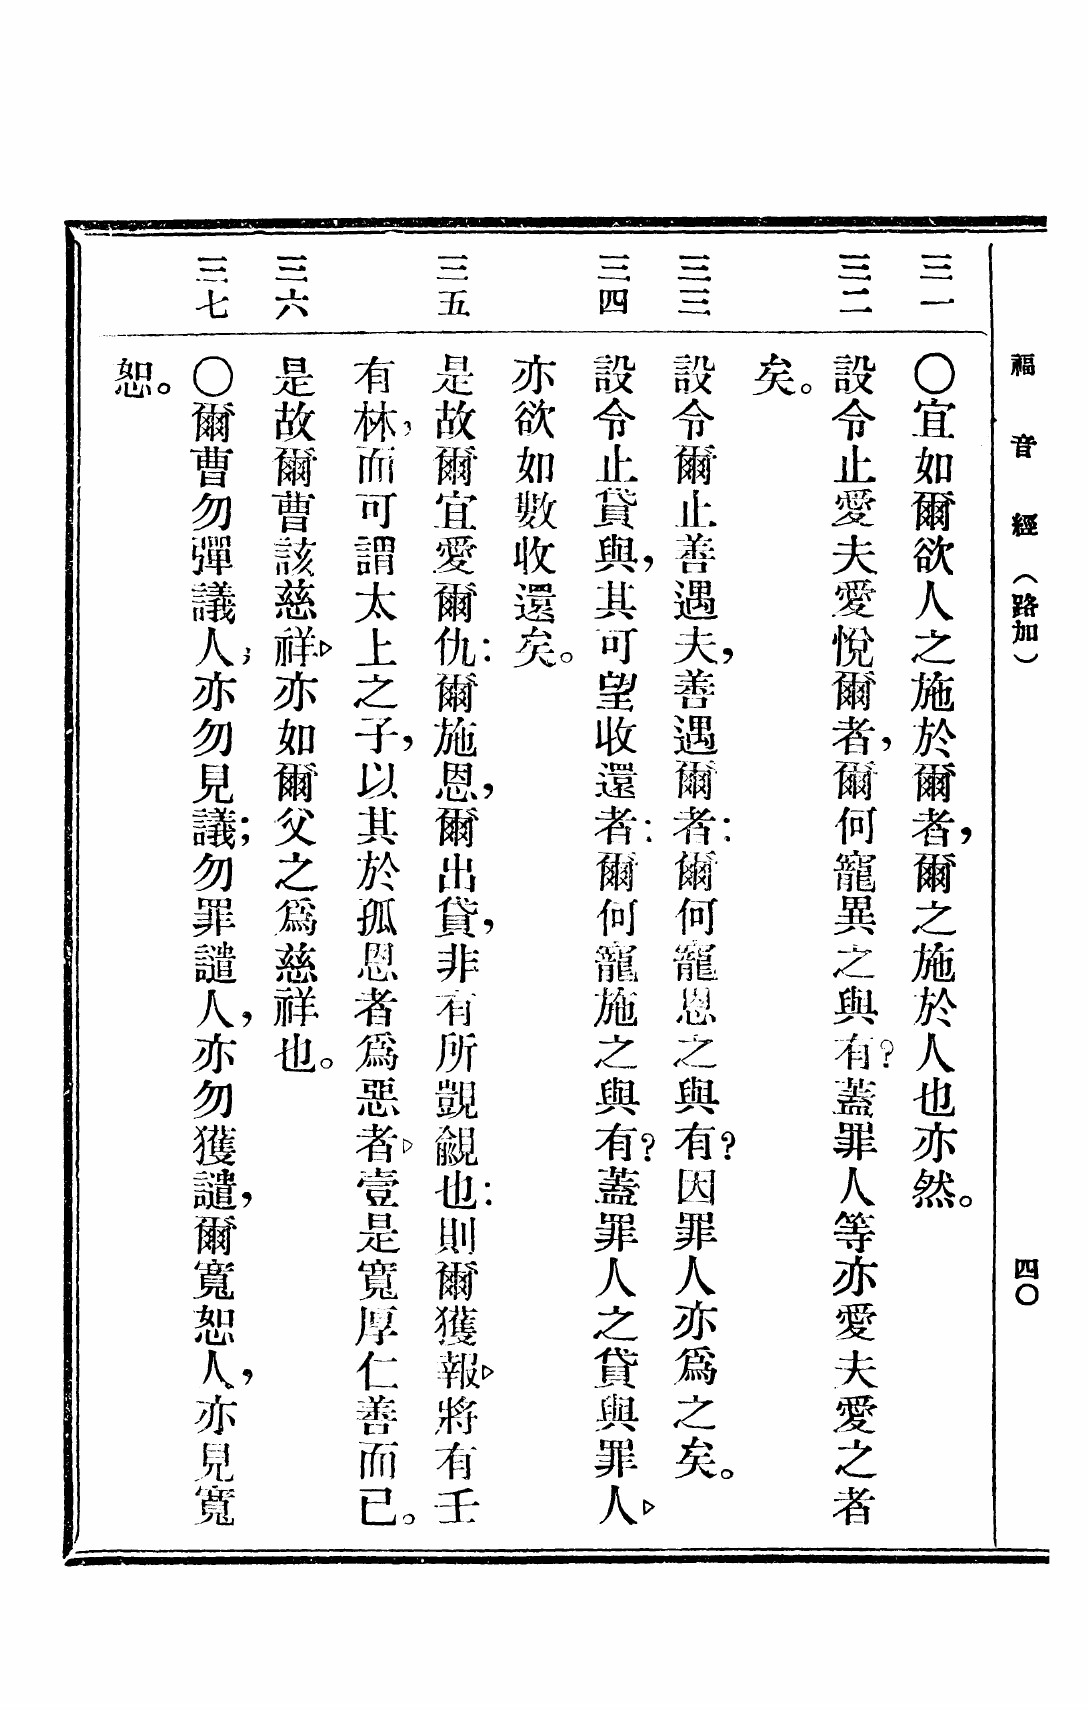 福音經（路加） 四〇
三一 〇宜如爾欲人之施於爾者，爾之施於人也亦然。
三二 設令止愛夫愛悅爾者，爾何寵異之與有？蓋罪人等亦愛夫愛之者
矣。
三三 設令爾止善遇夫，善遇爾者：爾何寵恩之與有？因罪人亦爲之矣。
三四 設令止貸與，其可望收還者：爾何寵施之與有？蓋罪人之貸與罪人▷
亦欲如數收還矣。
三五 是故爾宜愛爾仇：爾施恩，爾出貸，非有所覬覦也：則爾獲報▷將有壬
有林，而可謂太上之子，以其於孤恩者爲惡者▷壹是寬厚仁善而已。
三六 是故爾曹該慈祥▷亦如爾父之爲慈祥也。
三七 〇爾曹勿彈議人；亦勿見議；勿罪譴人，亦勿獲譴，爾寬恕人，亦見寬
恕。